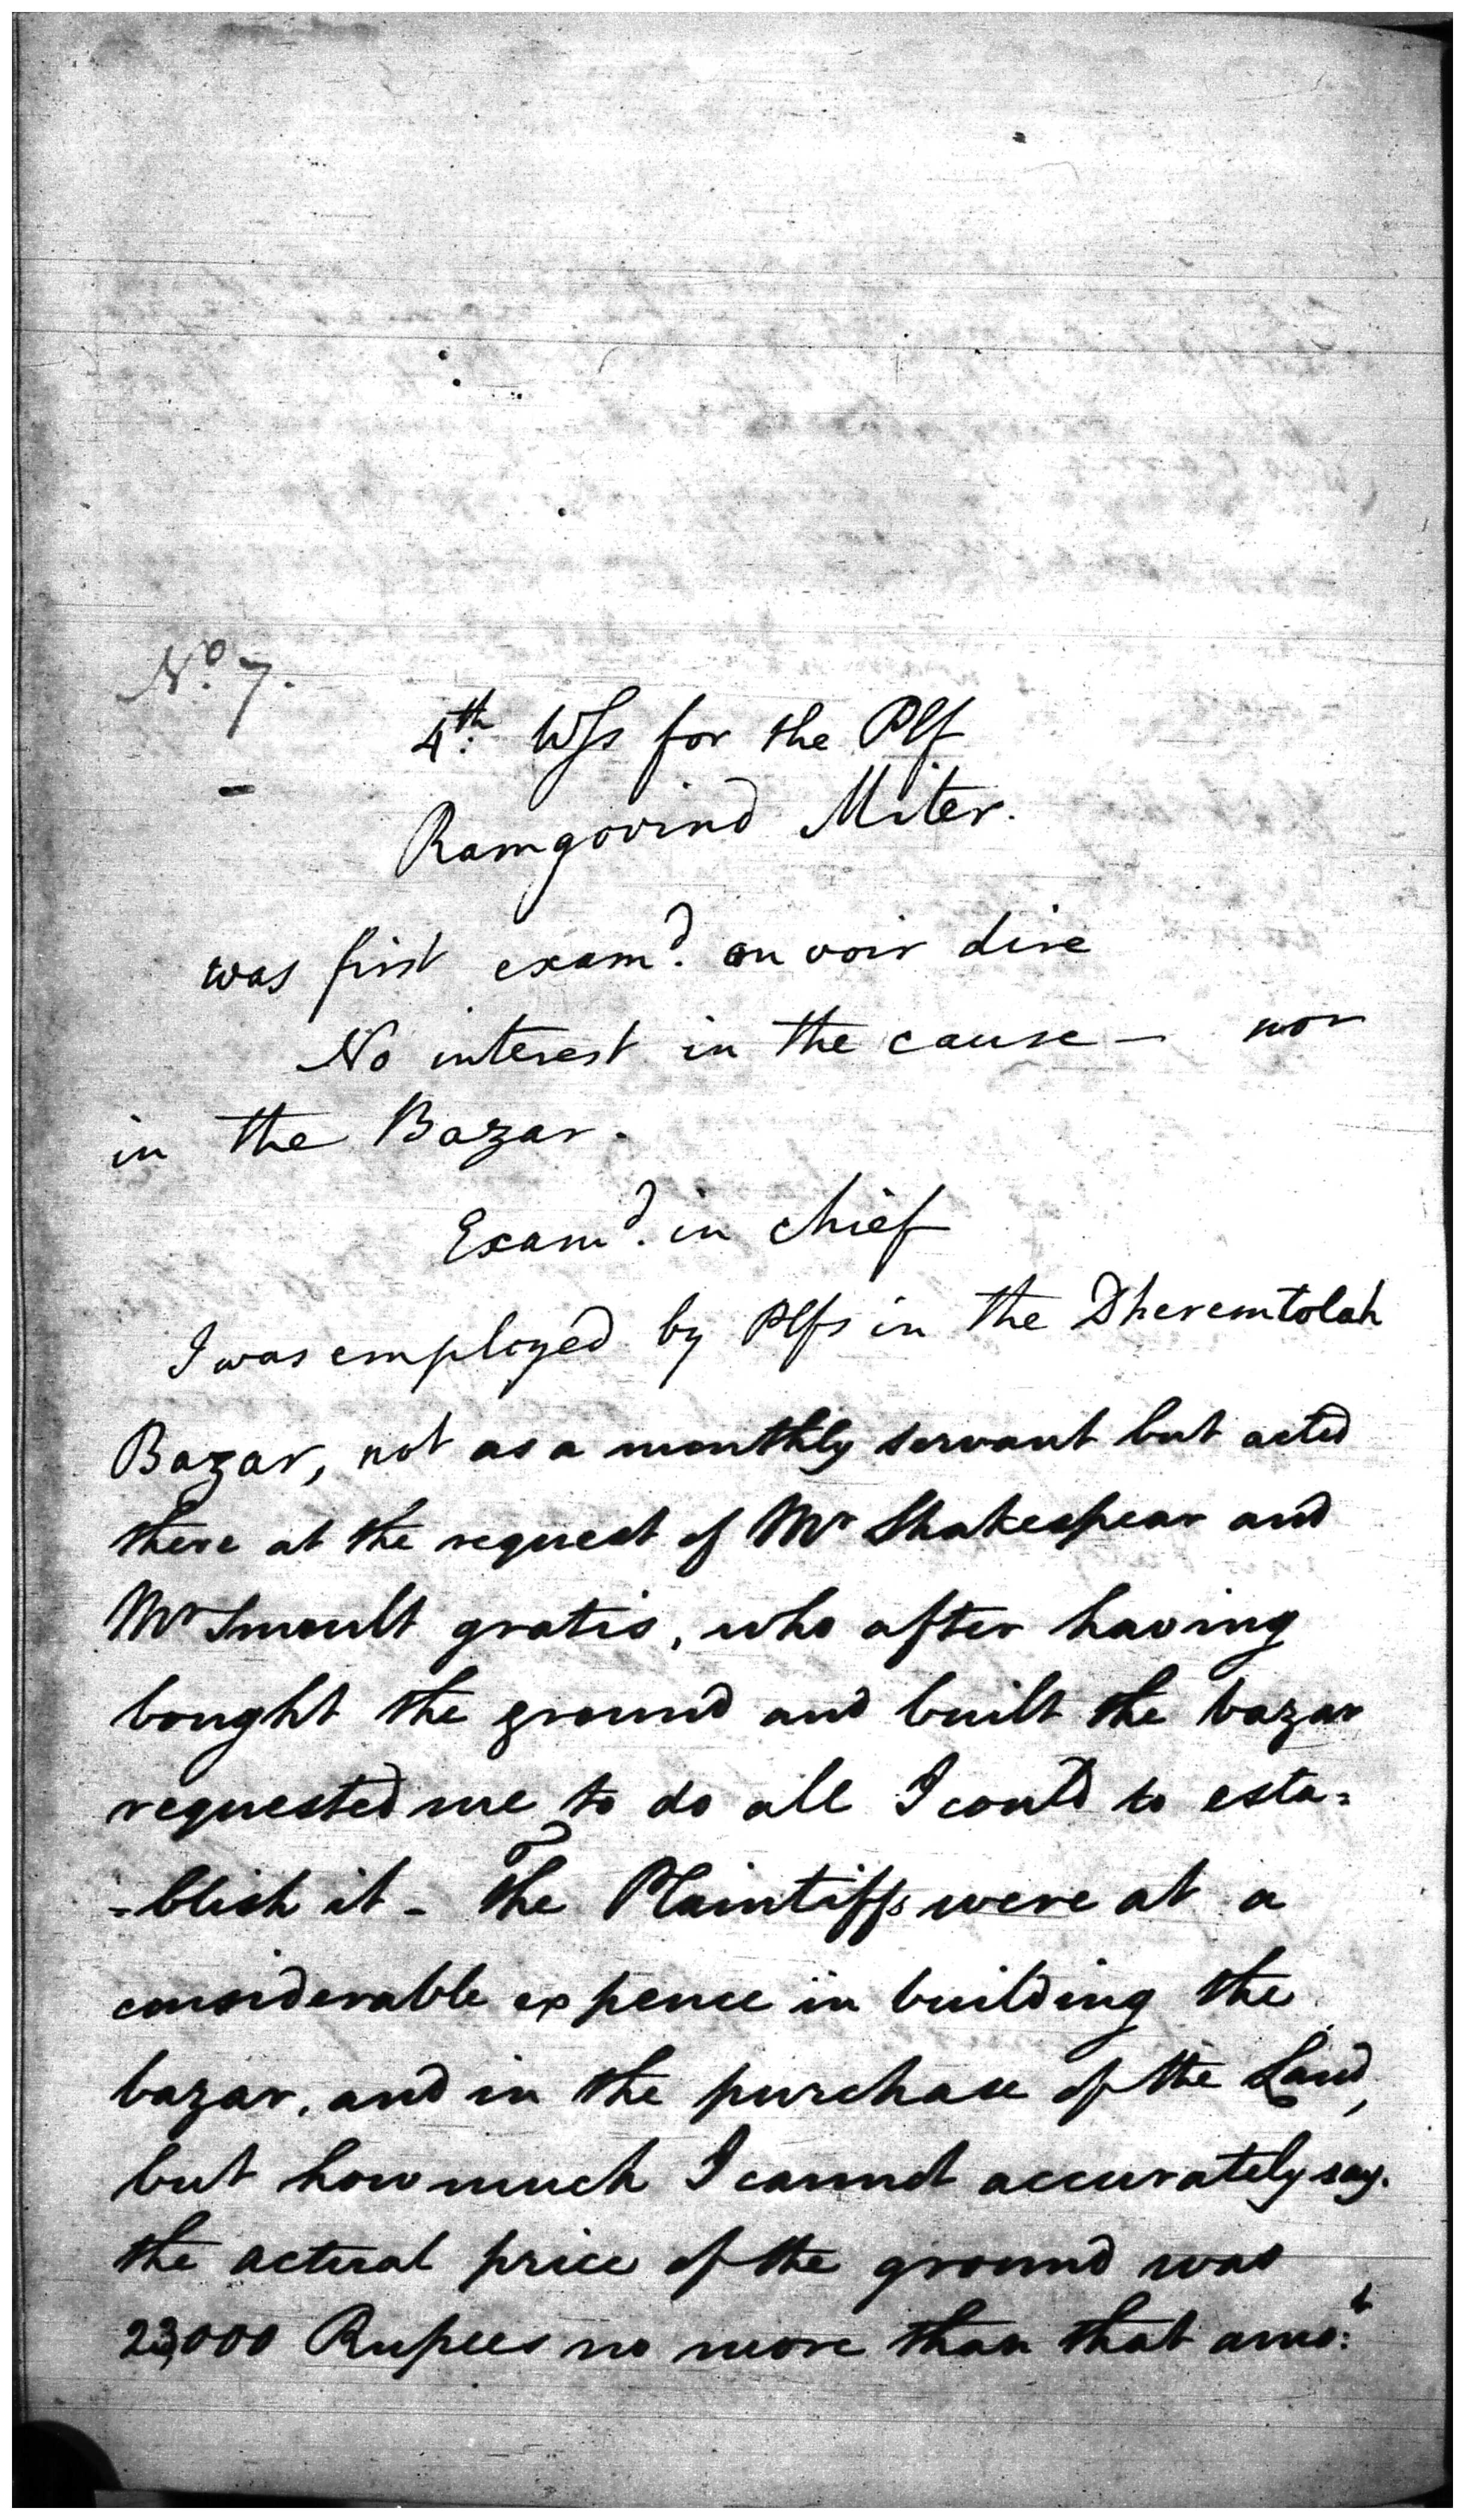 No. 7.
4th. Wss for the Plf
Ramgovind Miter.
was first examd. on voir dire
No interest in the cause — nor
in the Bazar.
Examd. in chief
I was employed by Plfs in the Dheremtolah
Bazar, not as a monthly servant but acted
there at the request of Mr Shakespear and
Mr Smoult gratis, who after having
bought the ground and built the bazar
requested me to do all I could to esta=
=blish it - The Plaintiffs were at a
considerable expence in building the
bazar, and in the purchase of the Land,
but how much I cannot accurately say.
the actual price of the ground was
23,000 Rupees no more than that amot: